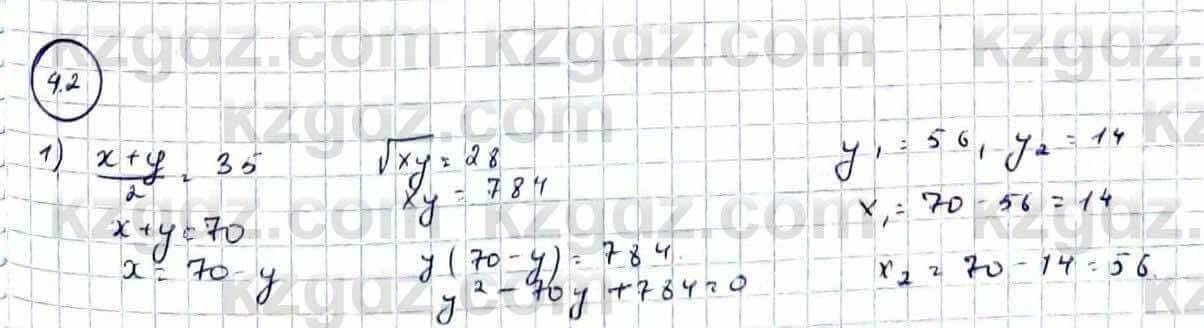 4.2
1) (x+y)/2 = 35
x+y=70
x = 70-y
√xy = 28
xy = 784
y(70-y) = 784.
y² - 70y + 784 = 0
y₁ = 56, y₂ = 14
x₁ = 70 - 56 = 14
x₂ = 70 - 14 = 56.
kzgdz.com kzgdz.com kzgdz.com
kzgdz.com
kzgdz.com kzgdz.com kzgdz.com
kzgdz.com